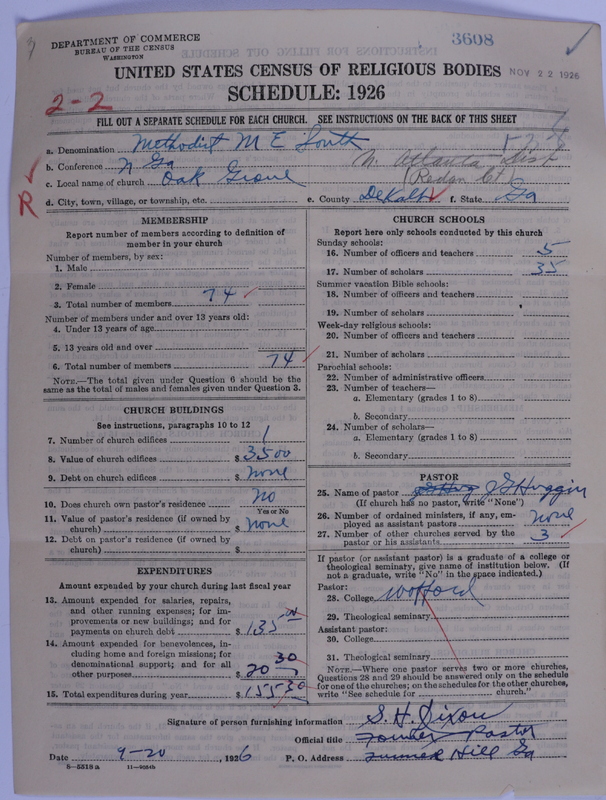 DEPARTMENT OF COMMERCE
BUREAU OF THE CENSUS
WASHINGTON
3608
UNITED STATES CENSUS OF RELIGIOUS BODIES
NOV 22 1926
SCHEDULE: 1926
2-2
FILL OUT A SEPARATE SCHEDULE FOR EACH CHURCH. SEE INSTRUCTIONS ON THE BACK OF THIS SHEET
a. Denomination Methodist M E South
b. Conference N Ga N. Atlanta Dist
c. Local name of church Oak Grove (Redan Ct)
R
d. City, town, village, or township, etc. e. County DeKalb f. State Ga
MEMBERSHIP
Report number of members according to definition of member in your church
Number of members, by sex:
1. Male
2. Female
3. Total number of members 74
Number of members under and over 13 years old:
4. Under 13 years of age
5. 13 years old and over
6. Total number of members 74
NOTE.—The total given under Question 6 should be the
same as the total of males and females given under Question 3.
CHURCH BUILDINGS
See instructions, paragraphs 10 to 12
7. Number of church edifices 1
8. Value of church edifices $ 3500
9. Debt on church edifices $ none
10. Does church own pastor's residence no
Yes or No
11. Value of pastor's residence (if owned by
church) $ none
12. Debt on pastor's residence (if owned by
church) $
EXPENDITURES
Amount expended by your church during last fiscal year
13. Amount expended for salaries, repairs,
and other running expenses; for im-
provements or new buildings; and for
payments on church debt $ 135
14. Amount expended for benevolences, in-
cluding home and foreign missions; for
denominational support; and for all
other purposes $ 20 30
15. Total expenditures during year $ 155 30
CHURCH SCHOOLS
Report here only schools conducted by this church
Sunday schools:
16. Number of officers and teachers 5
17. Number of scholars 35
Summer vacation Bible schools:
18. Number of officers and teachers
19. Number of scholars
Week-day religious schools:
20. Number of officers and teachers
21. Number of scholars
Parochial schools:
22. Number of administrative officers
23. Number of teachers—
a. Elementary (grades 1 to 8)
b. Secondary
24. Number of scholars—
a. Elementary (grades 1 to 8)
b. Secondary
PASTOR
25. Name of pastor J G Huggin
(If church has no pastor, write "None")
26. Number of ordained ministers, if any, em-
ployed as assistant pastors none
27. Number of other churches served by the
pastor or his assistants 3
If pastor (or assistant pastor) is a graduate of a college or
theological seminary, give name of institution below. (If
not a graduate, write "No" in the space indicated.)
Pastor:
28. College Wofford
29. Theological seminary
Assistant pastor:
30. College
31. Theological seminary
NOTE.—Where one pastor serves two or more churches,
Questions 28 and 29 should be answered only on the schedule
for one of the churches; on the schedules for the other churches,
write "See schedule for church."
Signature of person furnishing information S. H. Dixon
Official title Former Pastor
Date 9-20, 1926 P. O. Address Hill Ga
8—5518 a 11—9054b